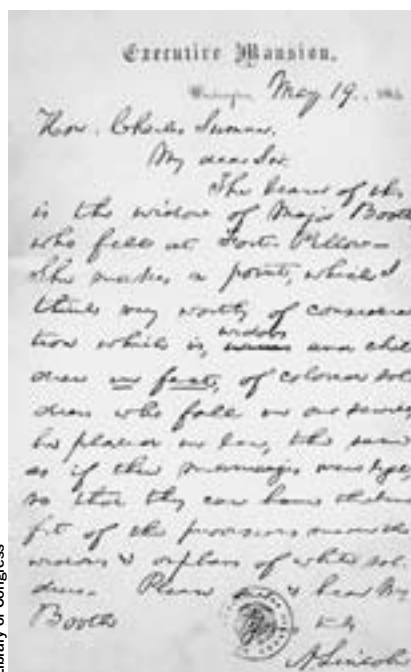 Executive Mansion,
Washington, May 19., 186
Hon. Charles Sumner,
My dear Sir.
The bearer of this
is the widow of Major Booth
who fell at Fort-Pillow—
She makes a point, which I
think very worthy of considera
tion which is, widows and chil
dren in fact, of colored sol
diers who fall in our service,
be placed in law, the same
as if their marriages were legal,
so that they can have the bene
fit of the provisions made the
widows & orphans of white sol-
diers. Please & hear Mrs
Booth
A. Lincoln
Library of Congress